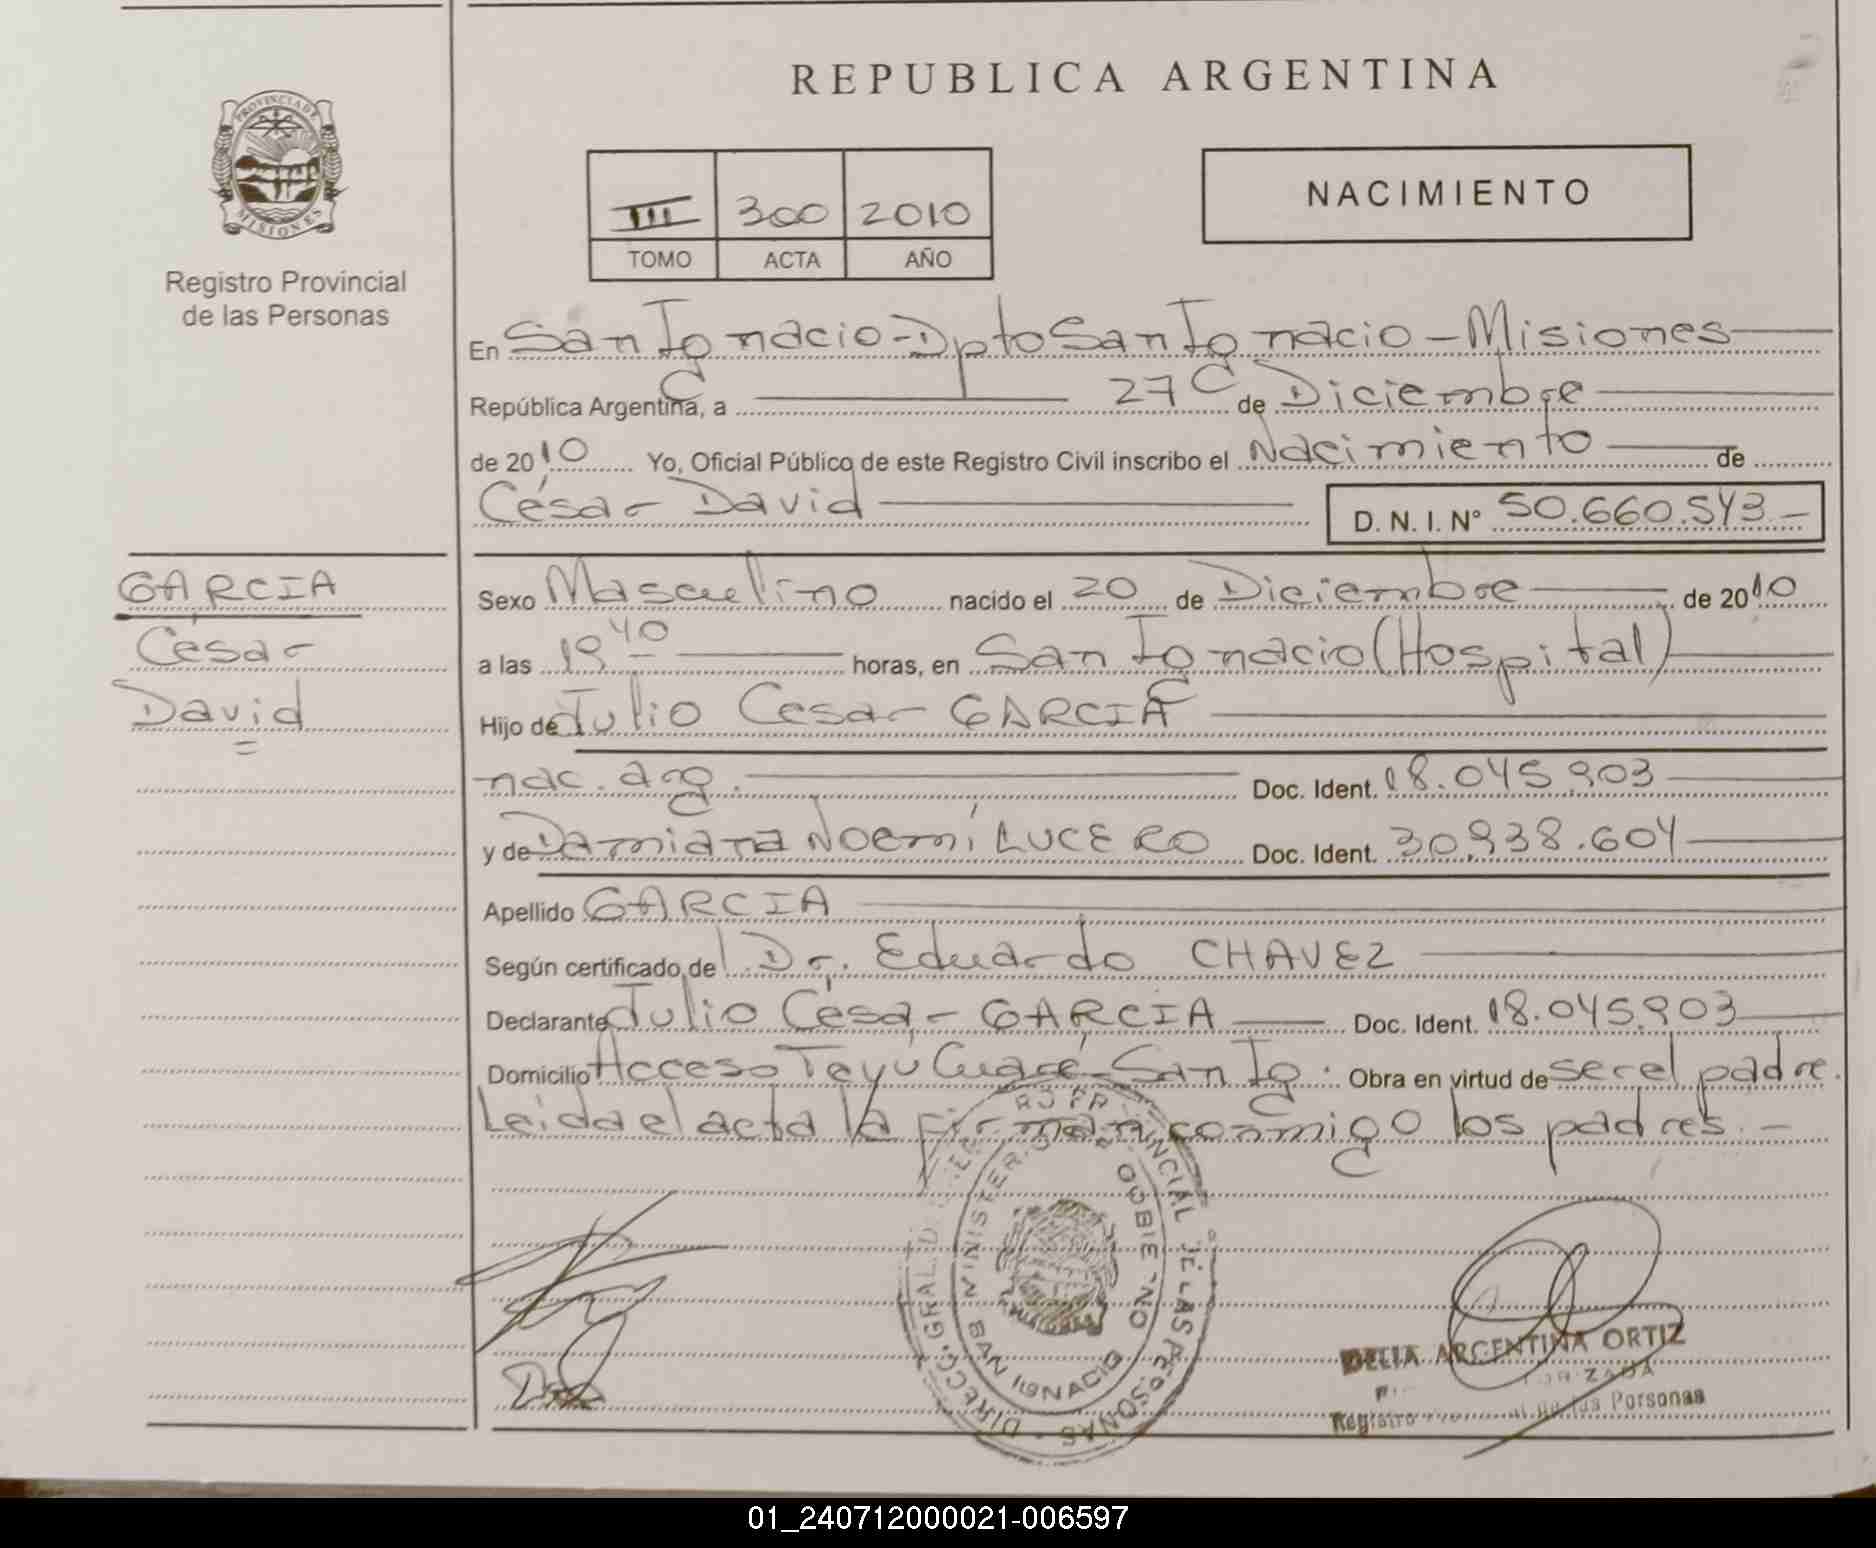 REPUBLICA ARGENTINA
PROVINCIA DE MISIONES
Registro Provincial
de las Personas
III 300 2010
TOMO ACTA AÑO
NACIMIENTO
En San Ignacio - Dpto San Ignacio - Misiones
República Argentina, a 27 de Diciembre
de 2010 Yo, Oficial Público de este Registro Civil inscribo el Nacimiento de
César David D. N. I. Nº 50.660.543.-
GARCIA
César
David
Sexo Masculino nacido el 20 de Diciembre de 2010
a las 19 40 horas, en San Ignacio (Hospital)
Hijo de Julio Cesar GARCIA
nac. arg. Doc. Ident. 18.045.903
y de Damiana Noemí LUCERO Doc. Ident. 30.938.604
Apellido GARCIA
Según certificado de Dr. Eduardo CHAVEZ
Declarante Julio César GARCIA Doc. Ident. 18.045.903
Domicilio Acceso Teyú Cuaré - San Ig. Obra en virtud de ser el padre.
Leida el acta la firman conmigo los padres.-
DIRECC. GRAL. DEL REG. PROVINCIAL DE LAS PERSONAS
MINISTERIO DE GOBIERNO
SAN IGNACIO
DELIA ARGENTINA ORTIZ
Registro Provincial de las Personas
01_240712000021-006597